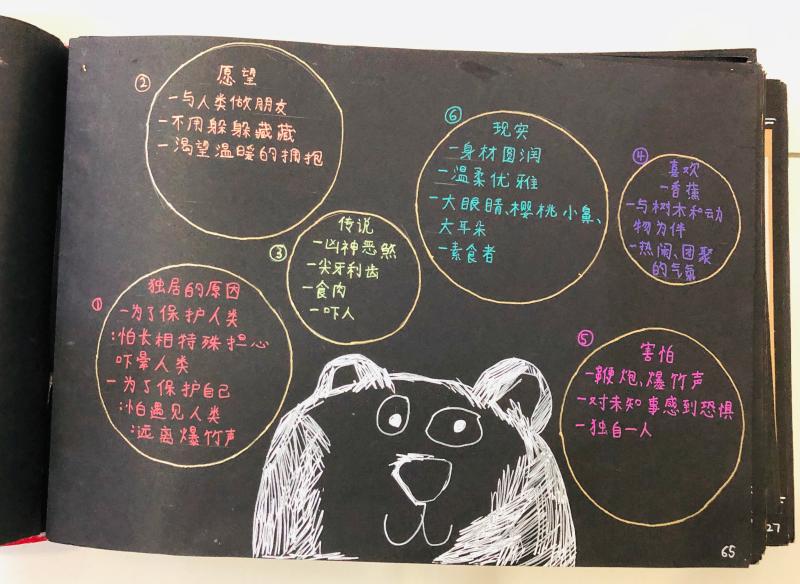 ①
独居的原因
一为了保护人类
:怕长相特殊担心
吓晕人类
一为了保护自己
:怕遇见人类
:远离爆竹声
②
愿望
一与人类做朋友
一不用躲躲藏藏
一渴望温暖的拥抱
③
传说
一凶神恶煞
一尖牙利齿
一食肉
一吓人
④
喜欢
一香蕉
一与树木和动
物为伴
一热闹、团聚
的气氛
⑤
害怕
一鞭炮、爆竹声
一对未知事感到恐惧
一独自一人
⑥
现实
一身材圆润
一温柔优雅
一大眼睛、樱桃小鼻、
大耳朵
一素食者
65
27